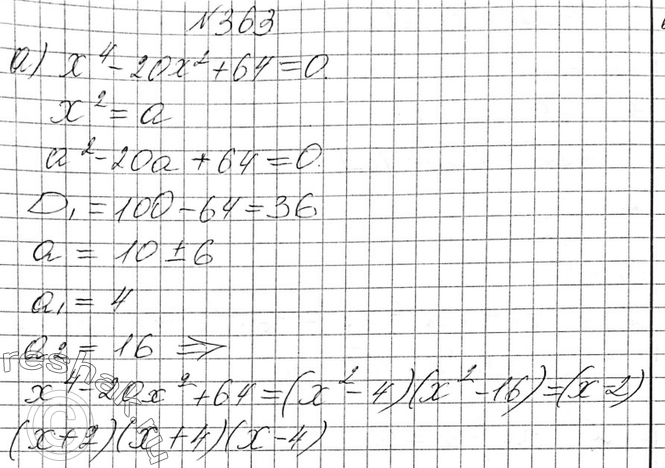 №363
а) x⁴ - 20x² + 64 = 0.
x² = a
a² - 20a + 64 = 0.
D₁ = 100 - 64 = 36
a = 10 ± 6
a₁ = 4
a₂ = 16 ⇒
x⁴ - 20x² + 64 = (x² - 4)(x² - 16) = (x - 2)
(x + 2)(x + 4)(x - 4)
reshak.ru
©